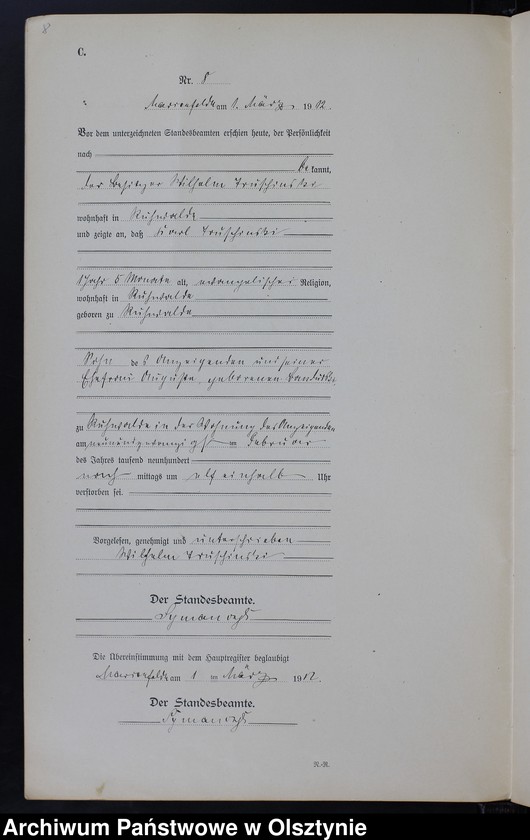 8
C.
Nr. 8
Marienfelde am 1. März 1912.
Vor dem unterzeichneten Standesbeamten erschien heute, der Persönlichkeit
nach
be kannt,
der Besitzer Wilhelm Truschinski
wohnhaft in Ruhwalde
und zeigte an, daß Karl Truschinski
1 Jahr 5 Monate alt, evangelischer Religion,
wohnhaft in Ruhwalde
geboren zu Ruhwalde
Sohn des Anzeigenden und seiner
Ehefrau Auguste geborenen
zu Ruhwalde in der Wohnung des Anzeigenden
am neunundzwanzigsten Februar
des Jahres tausend neunhundert
nach mittags um elf einhalb Uhr
verstorben sei.
Vorgelesen, genehmigt und unterschrieben
Wilhelm Truschinski
Der Standesbeamte.
Die Übereinstimmung mit dem Hauptregister beglaubigt
Marienfelde am 1 März 1912.
Der Standesbeamte.
N.-R.
Archiwum Państwowe w Olsztynie